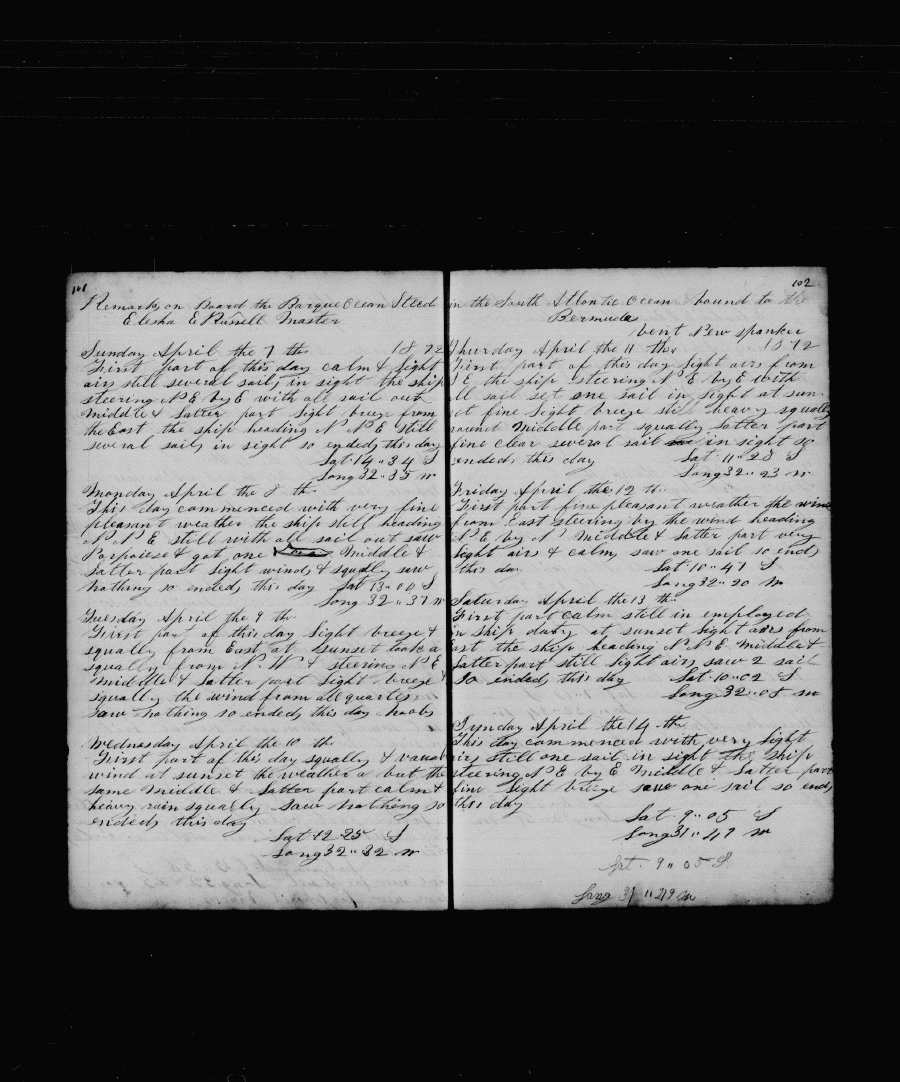 101
Remarks on Board the Barque Ocean Steed
Elesha E Russell Master
Sunday April the 7 th 1872
First part of this day calm & light
airs still several sails in sight the ship
steering N E by E with all sail out
middle & latter part light breeze from
the East the ship heading N N E still
several sails in sight so ended this day
Lat 14 " 34 S
Long 32 " 35 W
Monday April the 8 th
This day commenced with very fine
pleasant weather the ship still heading
N N E still with all sail out saw
Porpoise & got one Middle &
latter part light winds & squally saw
nothing so ended this day Lat 13 " 00 S
Long 32 " 37 W
Tuesday April the 9 th
First part of this day light breeze &
squally from East at sunset took a
squall from N W & steering N E
middle & latter part light breeze &
squally the wind from all quarters
saw nothing so ended this day no obs
Wednesday April the 10 th
First part of this day squally &
wind at sunset the weather a but the
same Middle & latter part calm &
heavy rain squally saw nothing so
ended this day
Lat 12 25 S
Long 32 " 32 W
102
in the South Atlantic Ocean bound to the
Bermudas
bent New spanker
Thursday April the 11 th 1872
First part of this day light airs from
S E the ship steering N E by E with
all sail set one sail in sight at sun
set fine light breeze still heavy squally
round middle part squally latter part
fine clear several sail in sight so
ended this day Lat 11 " 28 S
Long 32 " 23 W
Friday April the 12 th
First part fine pleasant weather the wind
from East steering by the wind heading
N E by N Middle & latter part very
light airs & calm saw one sail so ends
this day Lat 10 " 41 S
Long 32 " 20 W
Saturday April the 13 th
First part calm still in employed
in ship duty at sunset light airs from
East the ship heading N N E Middle &
latter part still light airs saw 2 sail
so ended this day Lat 10 " 02 S
Long 32 " 05 W
Sunday April the 14 th
This day commenced with very light
airs still one sail in sight the ship
steering N E by E Middle & latter part
fine light breeze saw one sail so ends
this day
Lat 9 " 05 S
Long 31 " 49 W
Lat 9 " 05 S
Long 31 " 29 W